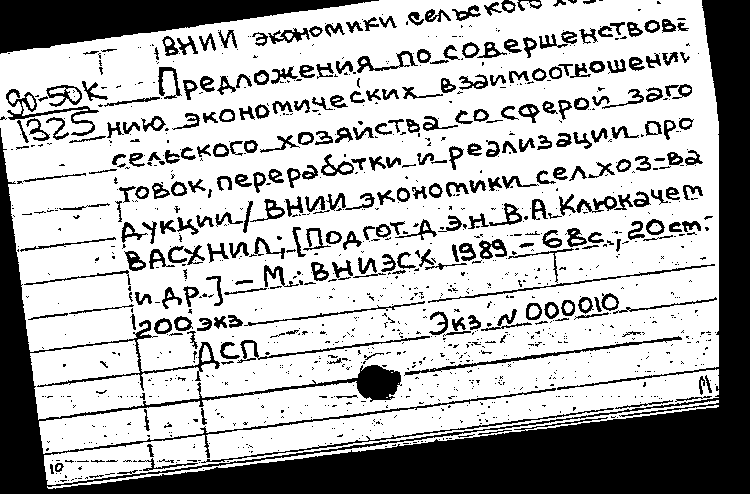 ВНИИ экономики сельского хоз
90-50К
1325
Предложения по совершенствова
нию экономических взаимоотношений
сельского хозяйства со сферой заго
товок, переработки и реализации про
дукции / ВНИИ экономики сел. хоз-ва
ВАСХНИЛ; [Подгот. д.э.н. В.А. Клюкач et
и др.]. – М.: ВНИЭСХ, 1989. – 68 с.; 20 см. –
200 экз.
Экз. N 000010.
ДСП.
М.
10